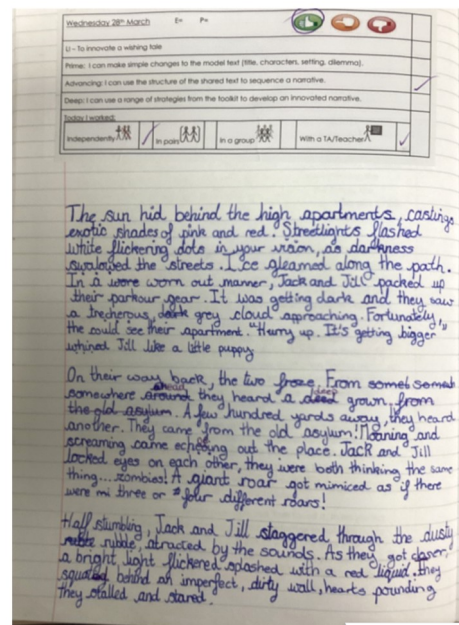 Wednesday 28th March E= P=
LI – To innovate a wishing tale
Prime: I can make simple changes to the model text (title, characters, setting, dilemma).
Advancing: I can use the structure of the shared text to sequence a narrative.
Deep: I can use a range of strategies from the toolkit to develop an innovated narrative.
Today I worked:
Independently In pairs In a group With a TA/Teacher
The sun hid behind the high apartments, castings
exotic shades of pink and red. Streetlights flashed
white flickering dots in your vision, as darkness
swalowed the streets. Ice gleamed along the path.
In a wore worn out manner, Jack and Jill packed up
their parkour gear. It was getting dark and they saw
a trecherous, dark grey cloud approaching. Fortunately,
the could see their apartment "Hurry up. It's getting bigger"
whined Jill like a little puppy
On their way back, the two froze. From
somewhere around ahead they heard a deep grown, from
the old asylum. A few hundred yards away, they heard
another. They came from the old asylum! Moaning and
screaming came echoing out of the place. Jack and Jill
locked eyes on each other, they were both thinking the same
thing... zombies! A giant roar got mimiced as if there
were three or four different roars!
Half stumbling, Jack and Jill staggered through the dusty
rubble, atracted by the sounds. As they got closer,
a bright light flickered splashed with a red liquid. they
squated behind an imperfect, dirty wall, hearts pounding
they stalled and stared.